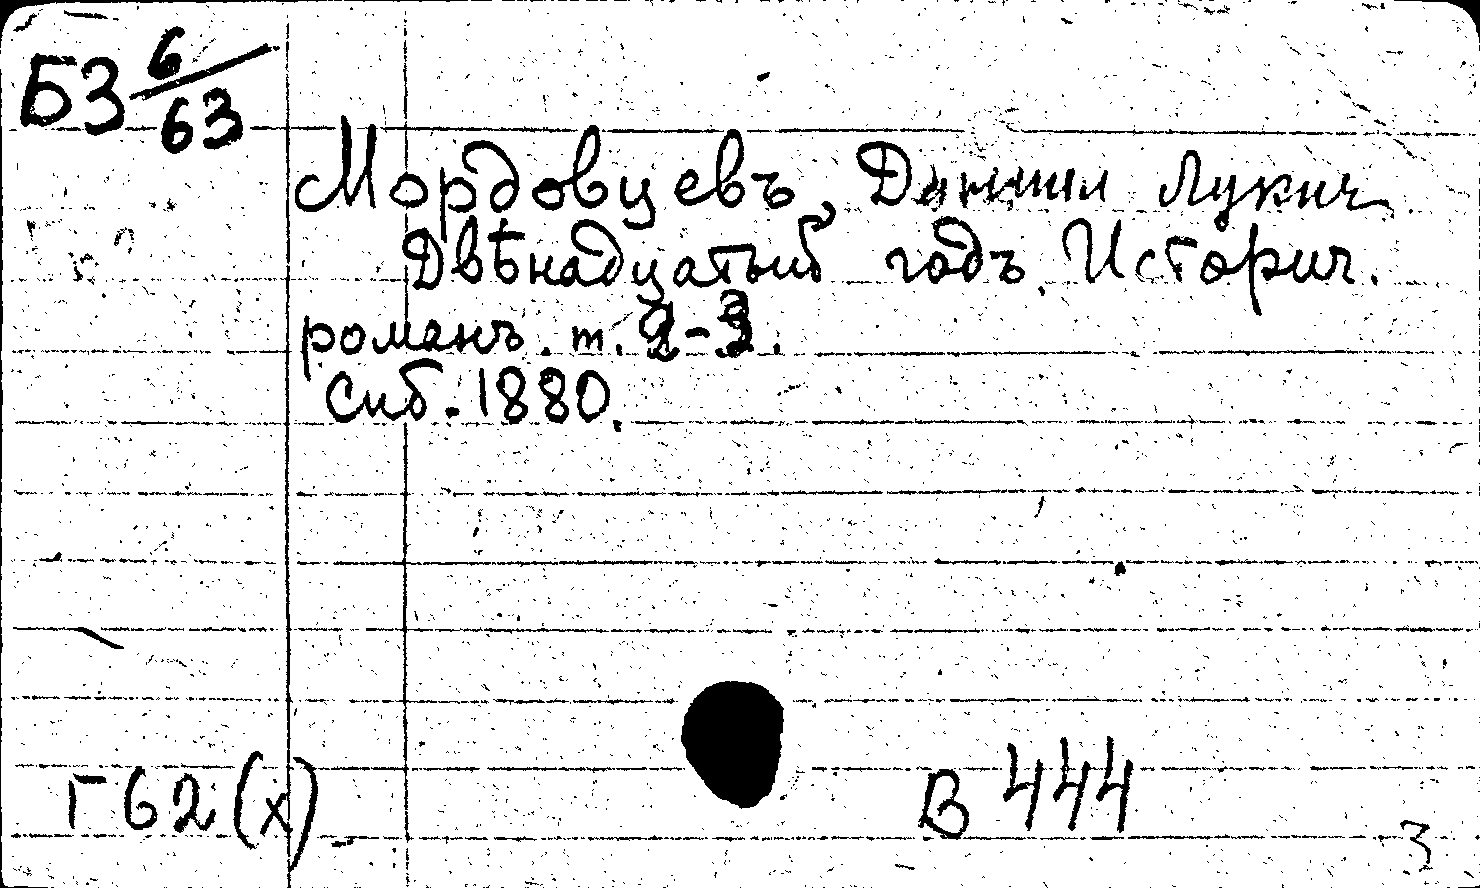 БЗ 6/63
Мордовцевъ, Даниил Лукич
Двѣнадцатый годъ. Историч.
романъ. т. 2-3.
Спб. 1880.
Г 62 (х)
В 444
3